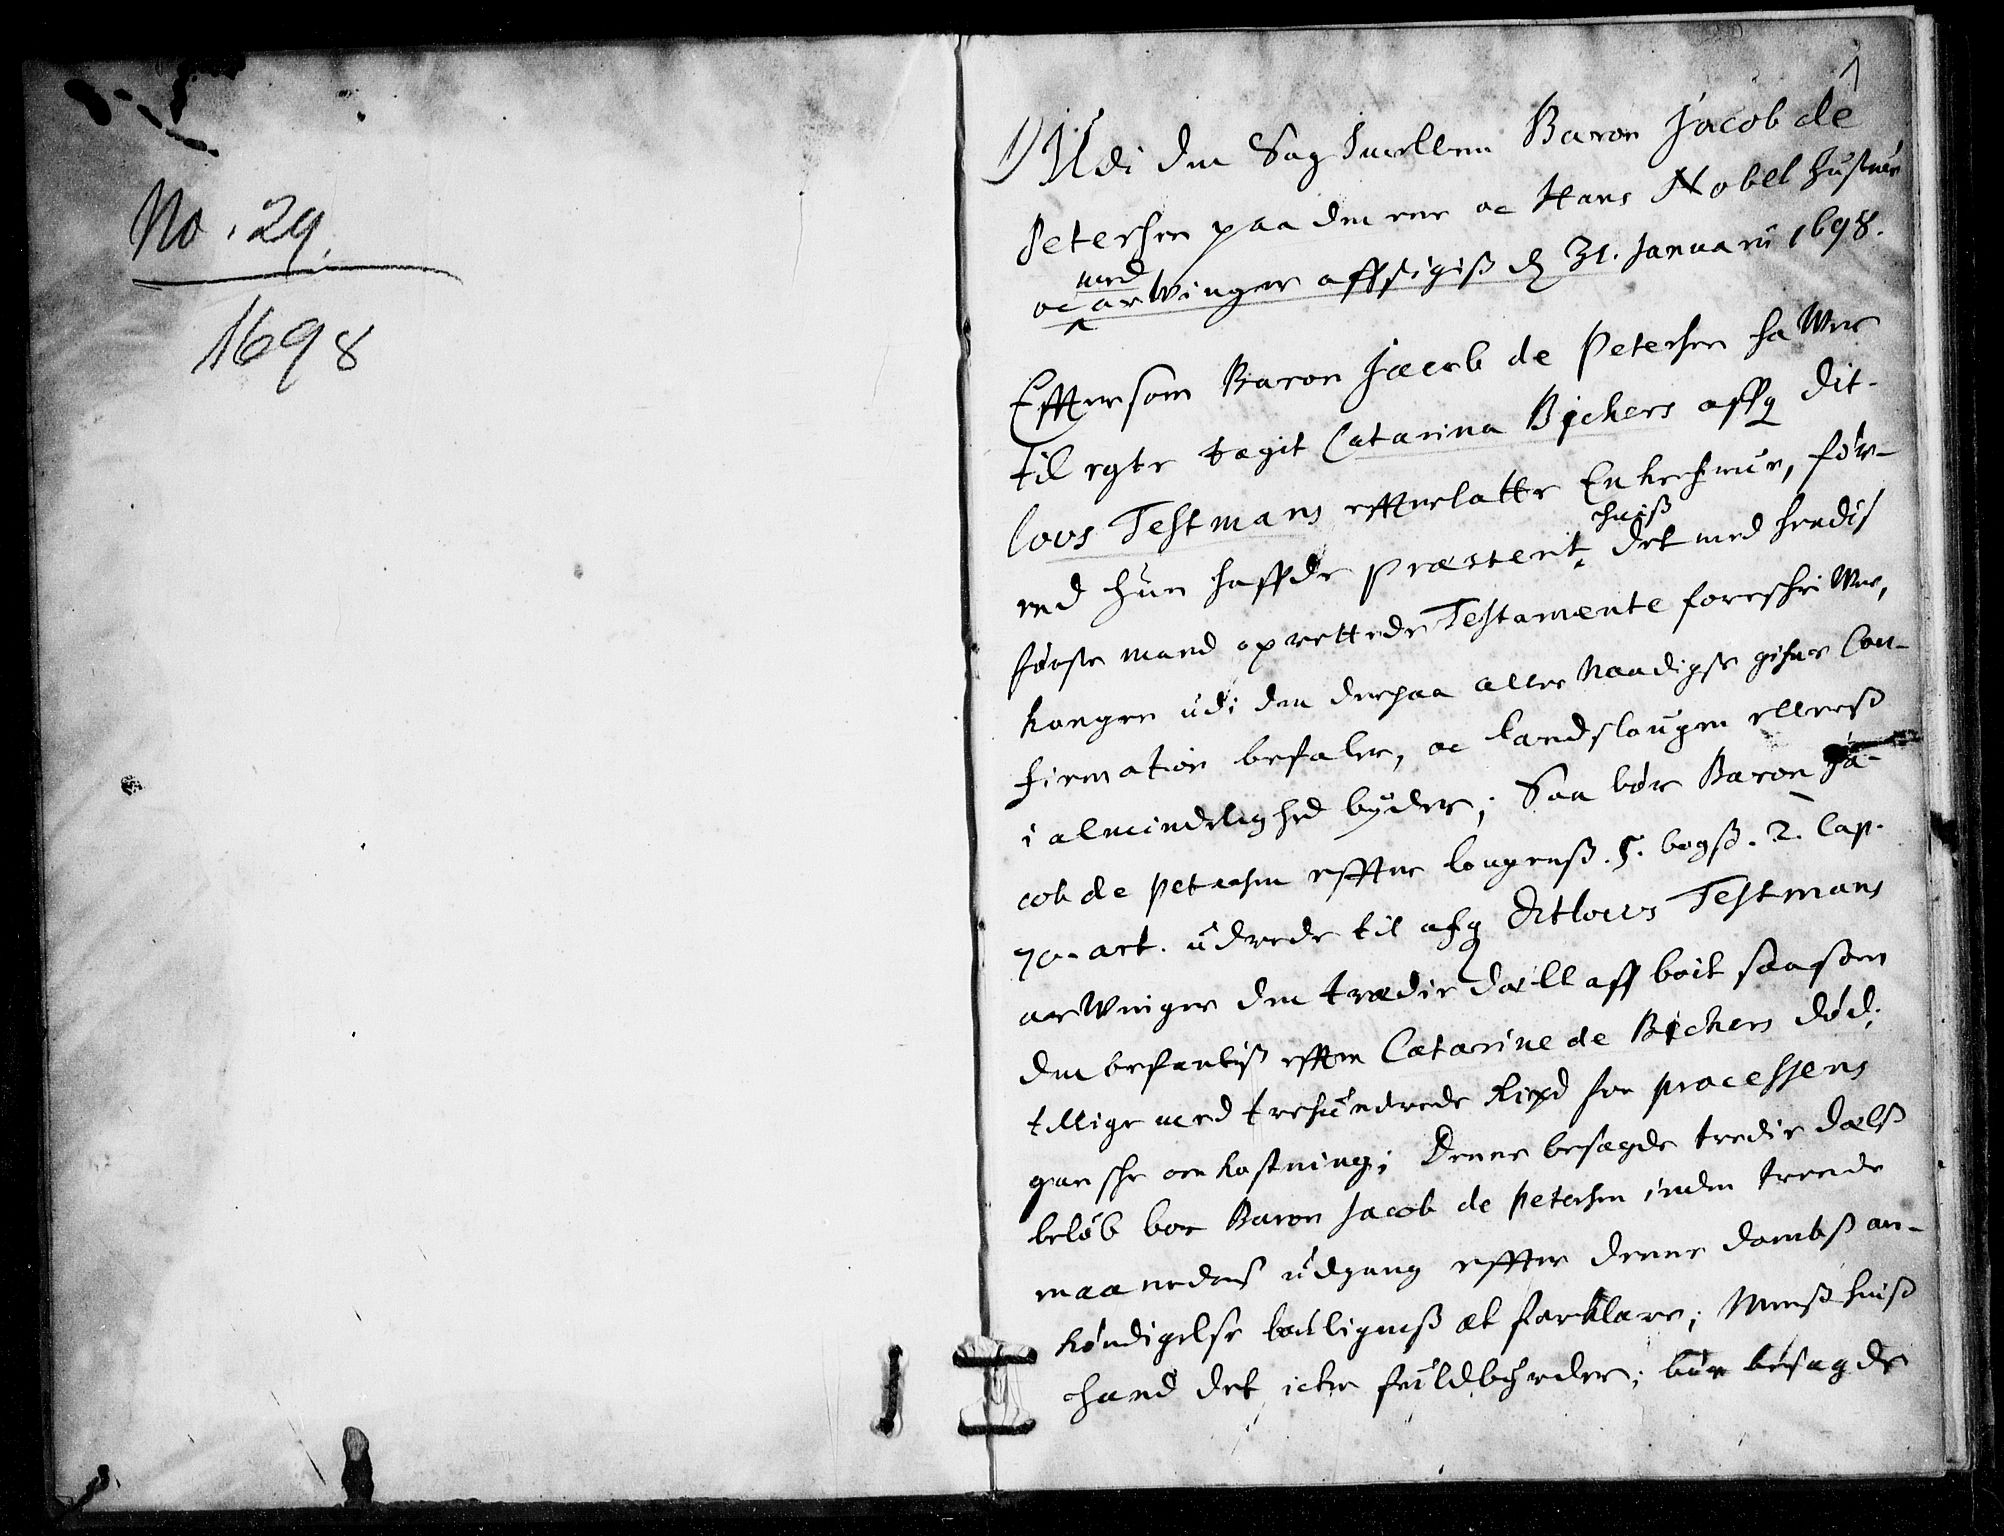 No. 29.
1698
1
1) Udi den Sag Imellem Baron Jacob de
Petersen paa den ene oc Hans Nobel hustrue
oc med arWinger affsigiß d 31. Januarii 1698.
Efftersom Baron Jacob de Petersen haWer
til egte tagit Catarina Bickers affg Dit-
lovs Testmans effterlatte Enkefrue, før-
end hun haffde præsterit huiß det med hendis
første mand oprettede Testamente foreskriWer,
kongen udi den derpaa aller Naadigst gifne Con-
firmation befaler, oc landslougen ellerß
i almindelighed byder; Saa bør Baron Ja-
cob de Petersen effter lougenß. 5. bogß. 2. Cap.
70. art. udrede til afg Ditlovs Testmans
arWinger den tredie deell aff boit saasom
den befantiß effter Catarine de Bickers død;
tillige med trehundrede Rixd for processens
gansche omkostning; Denne besagde tredie deelß
beløb bør Baron Jacob de Petersen inden trende
maanederß udgang effter denne dombß an-
køndigelse louligenß at forklare; Menß huiß
hand det icke fuldbyrder; bør besagde